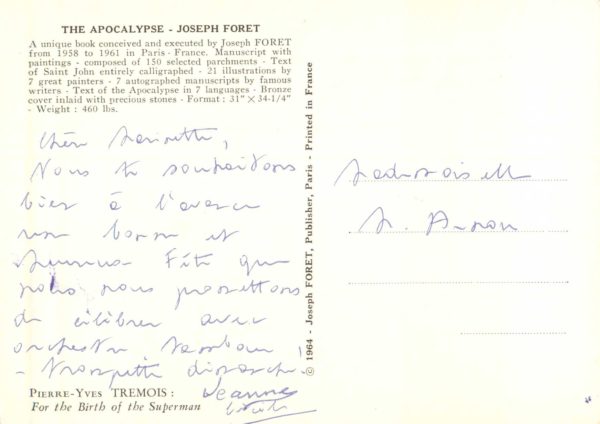 THE APOCALYPSE - JOSEPH FORET
A unique book conceived and executed by Joseph FORET
from 1958 to 1961 in Paris - France. Manuscript with
paintings - composed of 150 selected parchments - Text
of Saint John entirely calligraphed - 21 illustrations by
7 great painters - 7 autographed manuscripts by famous
writers - Text of the Apocalypse in 7 languages - Bronze
cover inlaid with precious stones - Format : 31" × 34-1/4"
- Weight : 460 lbs.
Nous te souhaitons
bien à l'avance
une bonne et
heureuse Fête que
nous nous promettons
de célébrer avec
orchestre tambour !
- trompette dimanche
PIERRE-YVES TREMOIS :
For the Birth of the Superman
Jeanne
© 1964 - Joseph FORET, Publisher, Paris - Printed in France
Mademoiselle
M.